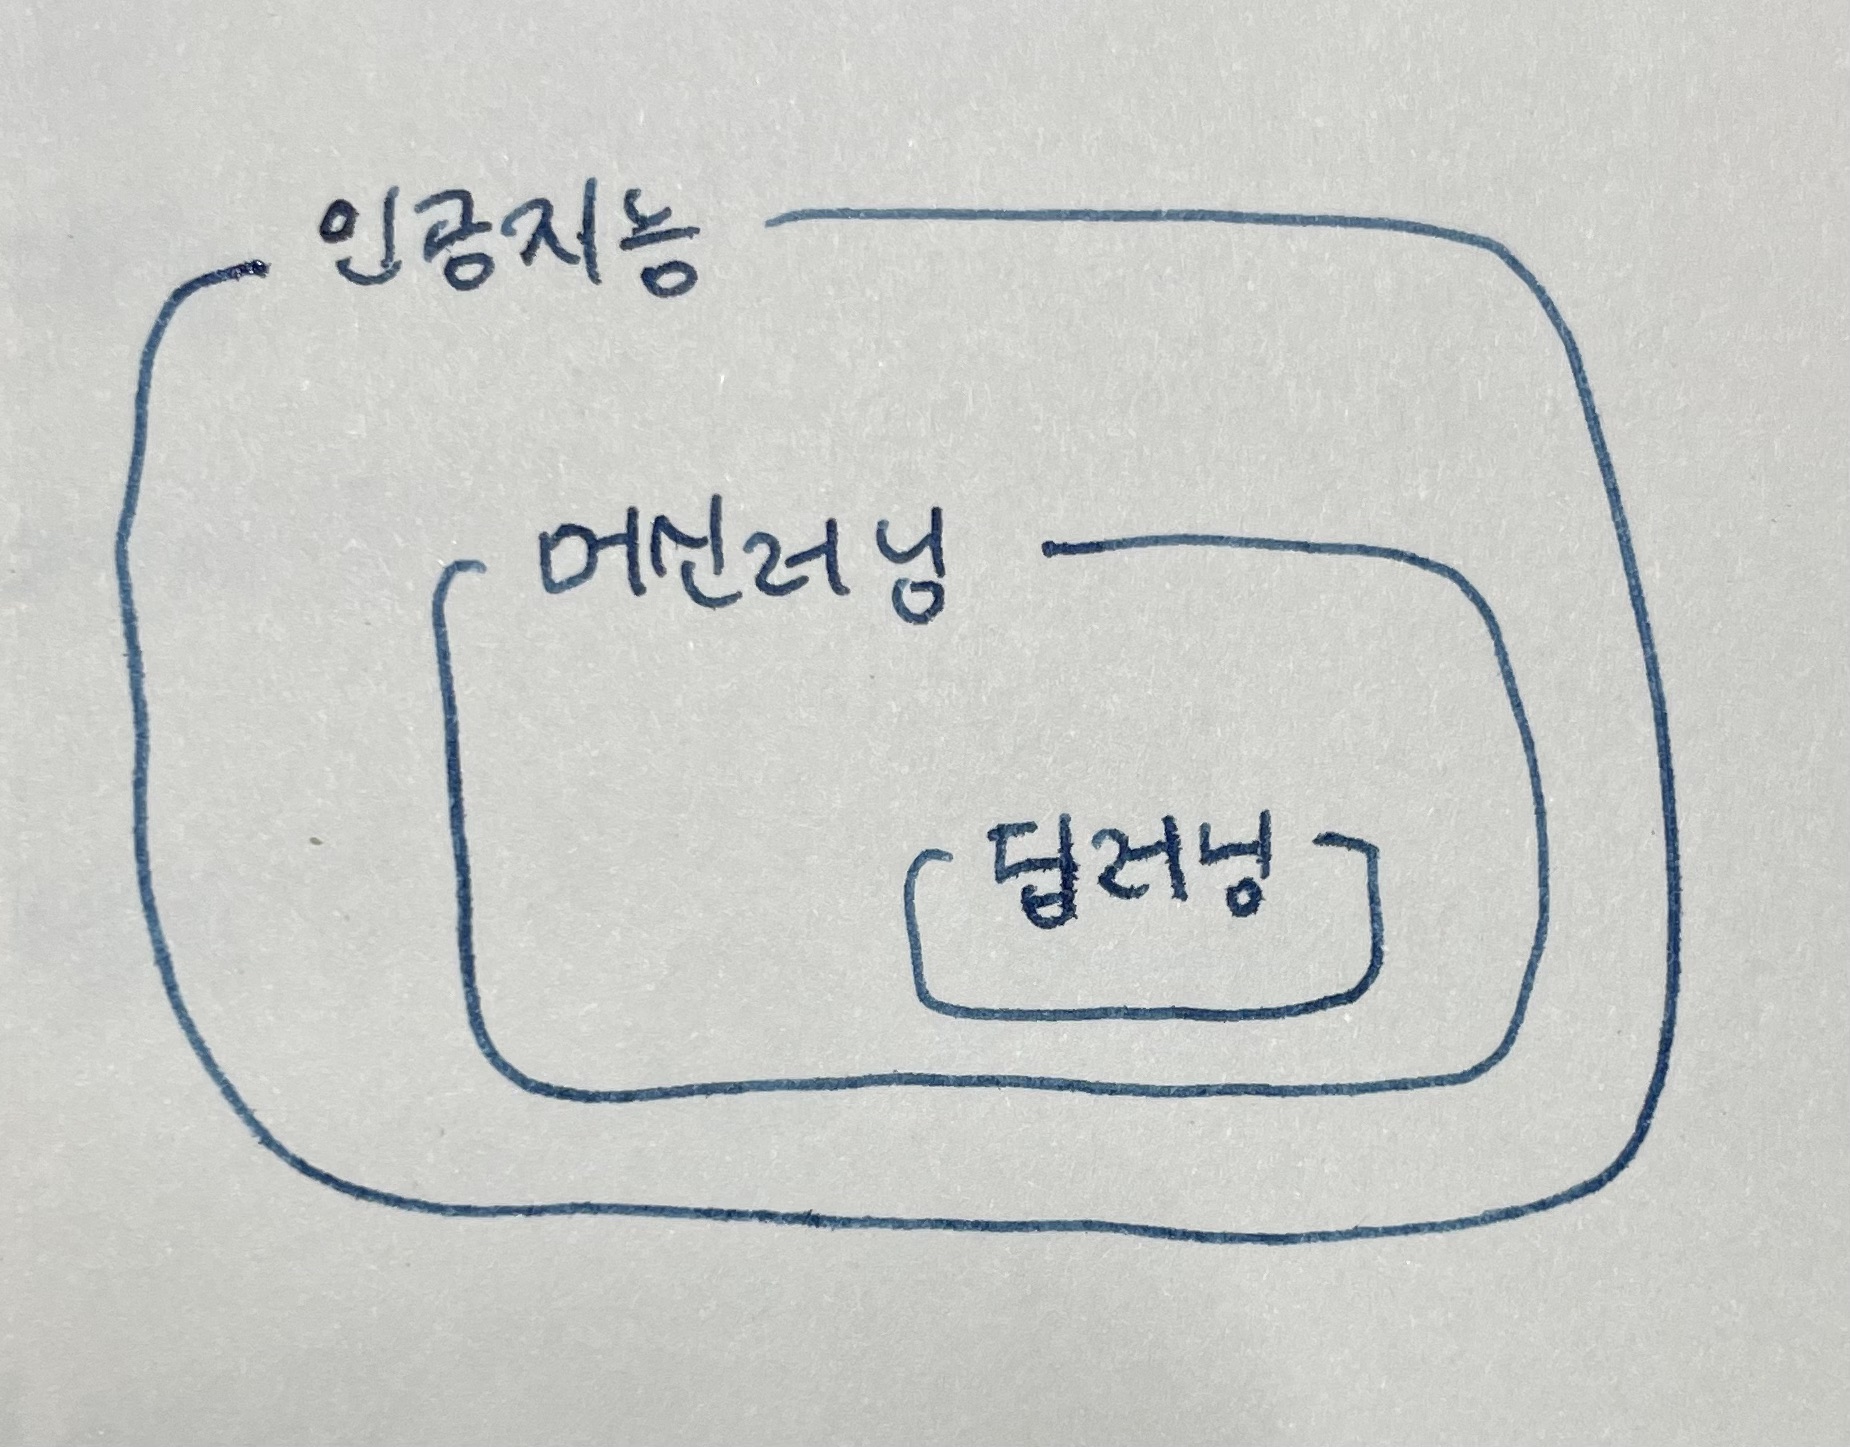 인공지능
머신러닝
딥러닝